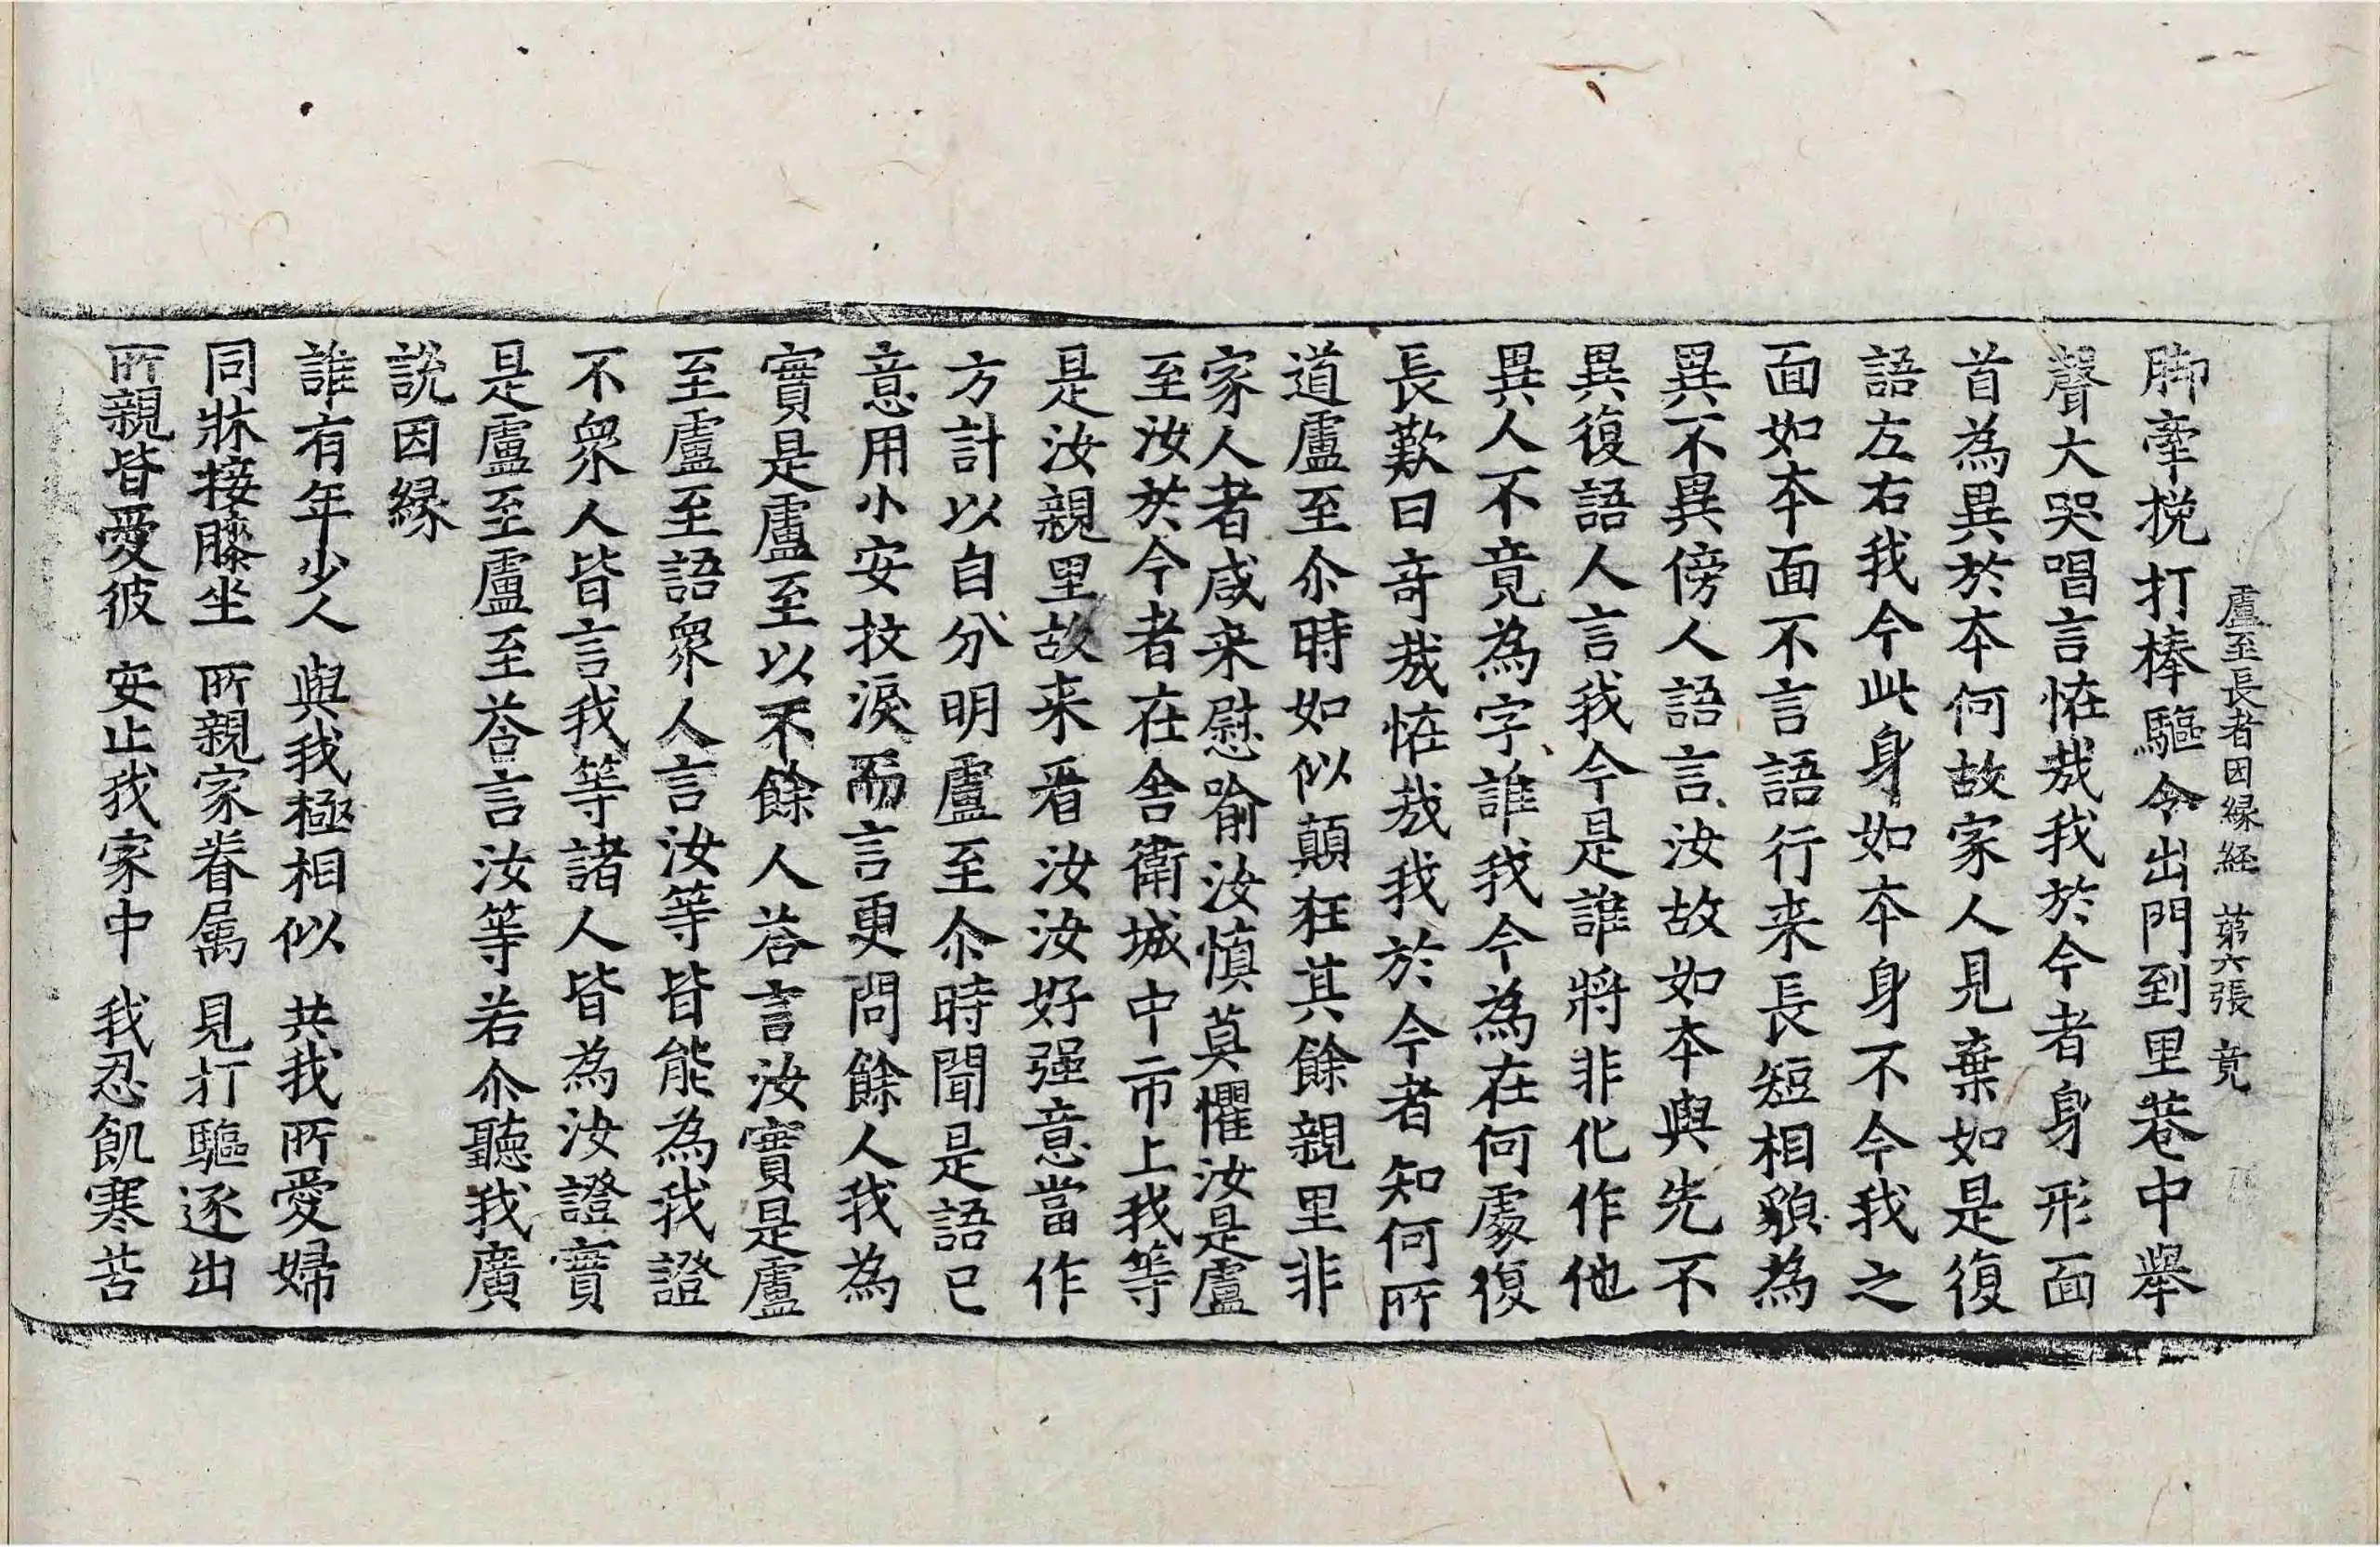 盧至長者因緣經 苐六張 竟
脚牽挽打棒驅令出門到里巷中舉
聲大哭唱言恠㦲我於今者身形面
首為異於夲何故家人見棄如是復
語左右我今此身如夲身不今我之
面如夲面不言語行来長短相貌為
異不異傍人語言汝故如本與先不
異復語人言我今是誰將非化作他
異人不竟為字誰我今為在何處復
長歎曰竒㦲恠㦲我於今者知何所
道盧至尒時如似顛狂其餘親里非
家人者咸来慰喻汝慎莫懼汝是盧
至汝於今者在舍衛城中市上我等
是汝親里故来看汝汝好强意當作
方計以自分明盧至尒時聞是語已
意用小安抆淚而言更問餘人我為
實是盧至以不餘人荅言汝實是盧
至盧至語衆人言汝等皆能為我證
不衆人皆言我等諸人皆為汝證實
是盧至盧至荅言汝等若尒聽我廣
說因緣
誰有年少人 與我極相似 共我所愛婦
同牀接膝坐 所親家眷属 見打驅逐出
所親皆愛彼 安止我家中 我忍飢寒苦